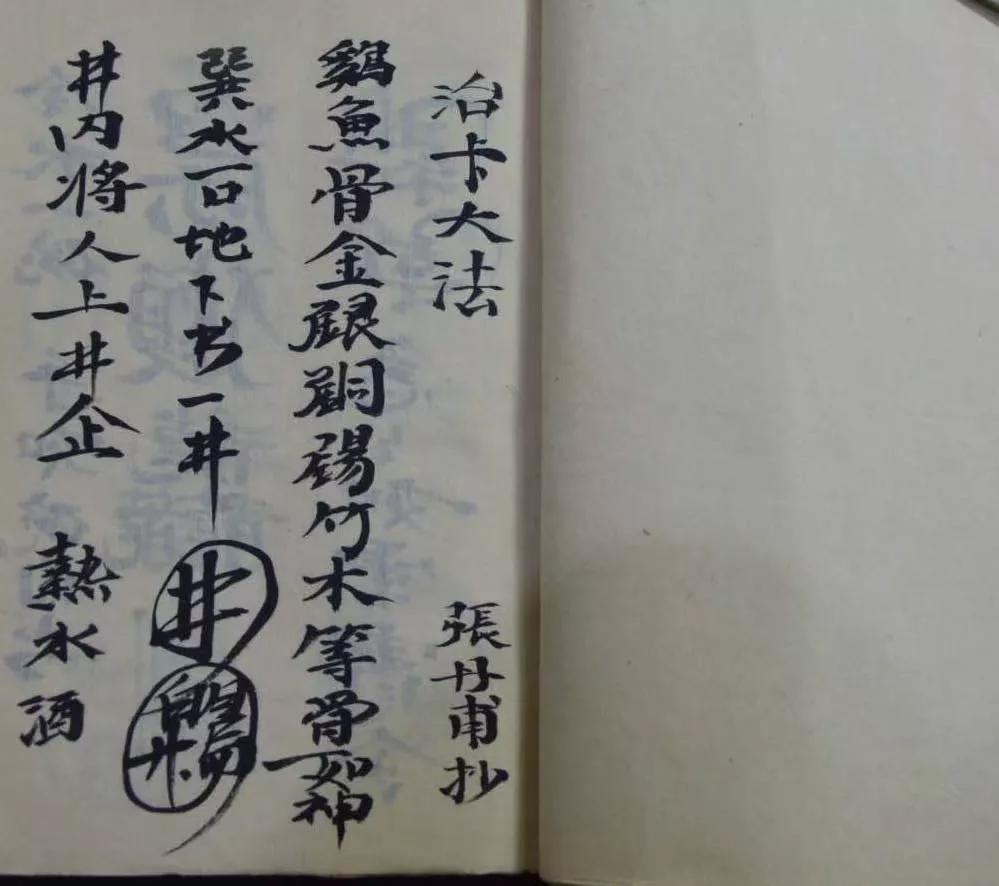 治卡大法 張丹甫抄
鷄魚骨金銀銅錫竹木等骨如神
巽水一口地下书一井 井
井内将人上井企 熱水酒